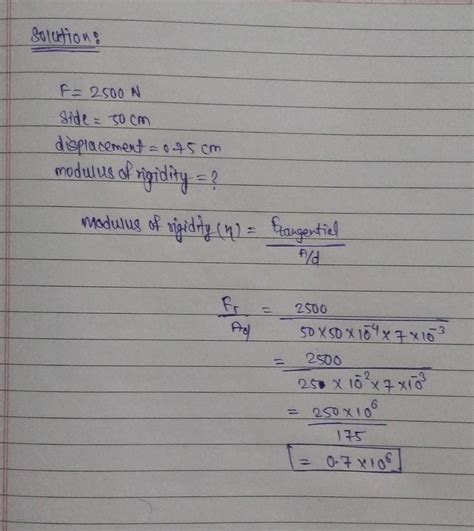 Solution:
F = 2500 N
Side = 50 cm
displacement = 0.75 cm
modulus of rigidity = ?
modulus of rigidity (η) = Ftangential
A/d
FT = 2500
Ad 50×50×10⁻⁴×7×10⁻³
= 2500
250 × 10⁻²×7×10⁻³
= 250×10⁶
175
= 0.7×10⁶